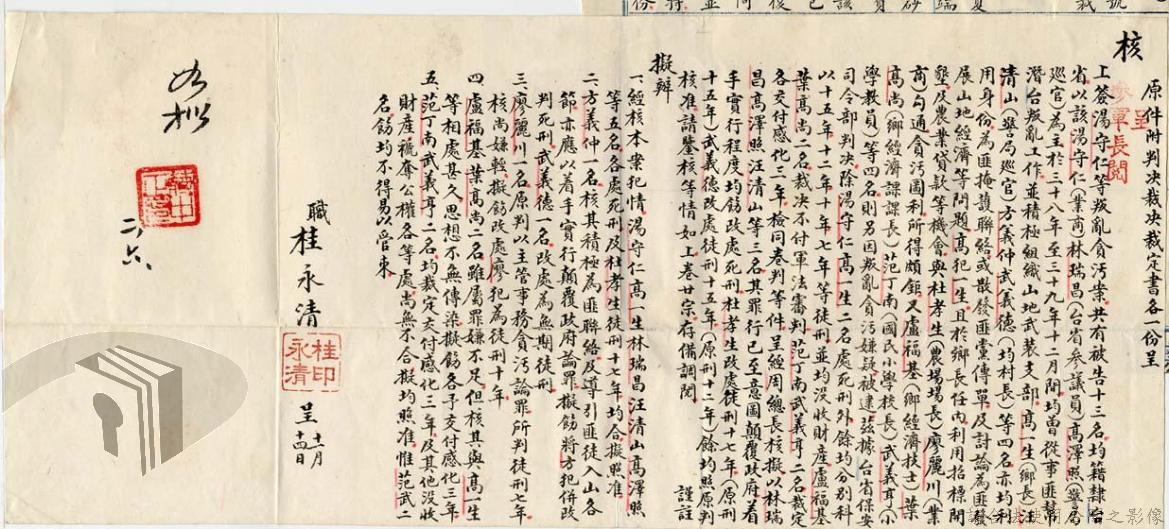 核
原件附判決裁定書各一份呈
呈
參軍長閱
上簽湯守仁等叛亂貪污案共有被告十三名均籍隸台
省以該湯守仁(業商)林瑞昌(台省參議員)高澤照(警局
巡官)為主於三十八年至三十九年十二月間均曾從事匪幫
潛台叛亂工作並精極組織山地武裝支部高一生(鄉長)汪
清山(警局巡官)方義仲武義德(均村長)等四名亦均利
用身份為匪掩護聯絡或散發匪黨傳單及討論為匪發
展山地經濟等問題高犯一生且於鄉長任內利用招標開
墾及農業貸款等機會與杜孝生(農場場長)廖麗川(業
商)勾通貪污圖利所得頗鉅又盧福基(鄉經濟技士)葉
高尚(鄉經濟課課長)范丁南(國民小學校長)武義亨(小
學教員)等四名則另因叛亂貪污嫌疑被逮茲據台省保安
司令部判決除湯守仁高一生二名處死刑外餘均分別科
以十五年十二年十年七年等徒刑並均沒收財產盧福基
葉高尚二名裁決不付軍法審判范丁南武義亨二名裁定
各交付感化三年檢同卷判等件呈經周總長核擬以林瑞
昌高澤照汪清山等三名其罪行已至意圖顛覆政府着
手實行程度均飭改處死刑杜孝生改處徒刑十七年(原刑
十五年)武義德改處徒刑十五年(原刑十二年)餘均照原判
核准請鑒核等情如上卷廿宗存備調閱
謹註
擬辦
一經核本案犯情湯守仁高一生林瑞昌汪清山高澤照
等五名各處死刑及杜孝生徒刑十七年均合擬照准
二方義仲一名核其積極為匪聯絡及導引匪徒入山各
節亦應以着手實行顛覆政府論罪擬飭將方犯併改
判死刑武義德一名改處為無期徒刑
三廖麗川一名原判以主管事務貪污論罪所判徒刑七年
核尚嫌輕擬飭改處廖犯為徒刑十年
四盧福基葉高尚二名雖屬罪嫌不足但核其與高一生
等相處甚久思想不無傳染擬飭各予交付感化三年
五范丁南武義亨二名均裁定交付感化三年及其他沒收
財產褫奪公權各等處尚無不合擬均照准惟范武二
名飭均不得易以管束
職桂永清
桂永清印
呈
十一月
十四日
如擬
二六